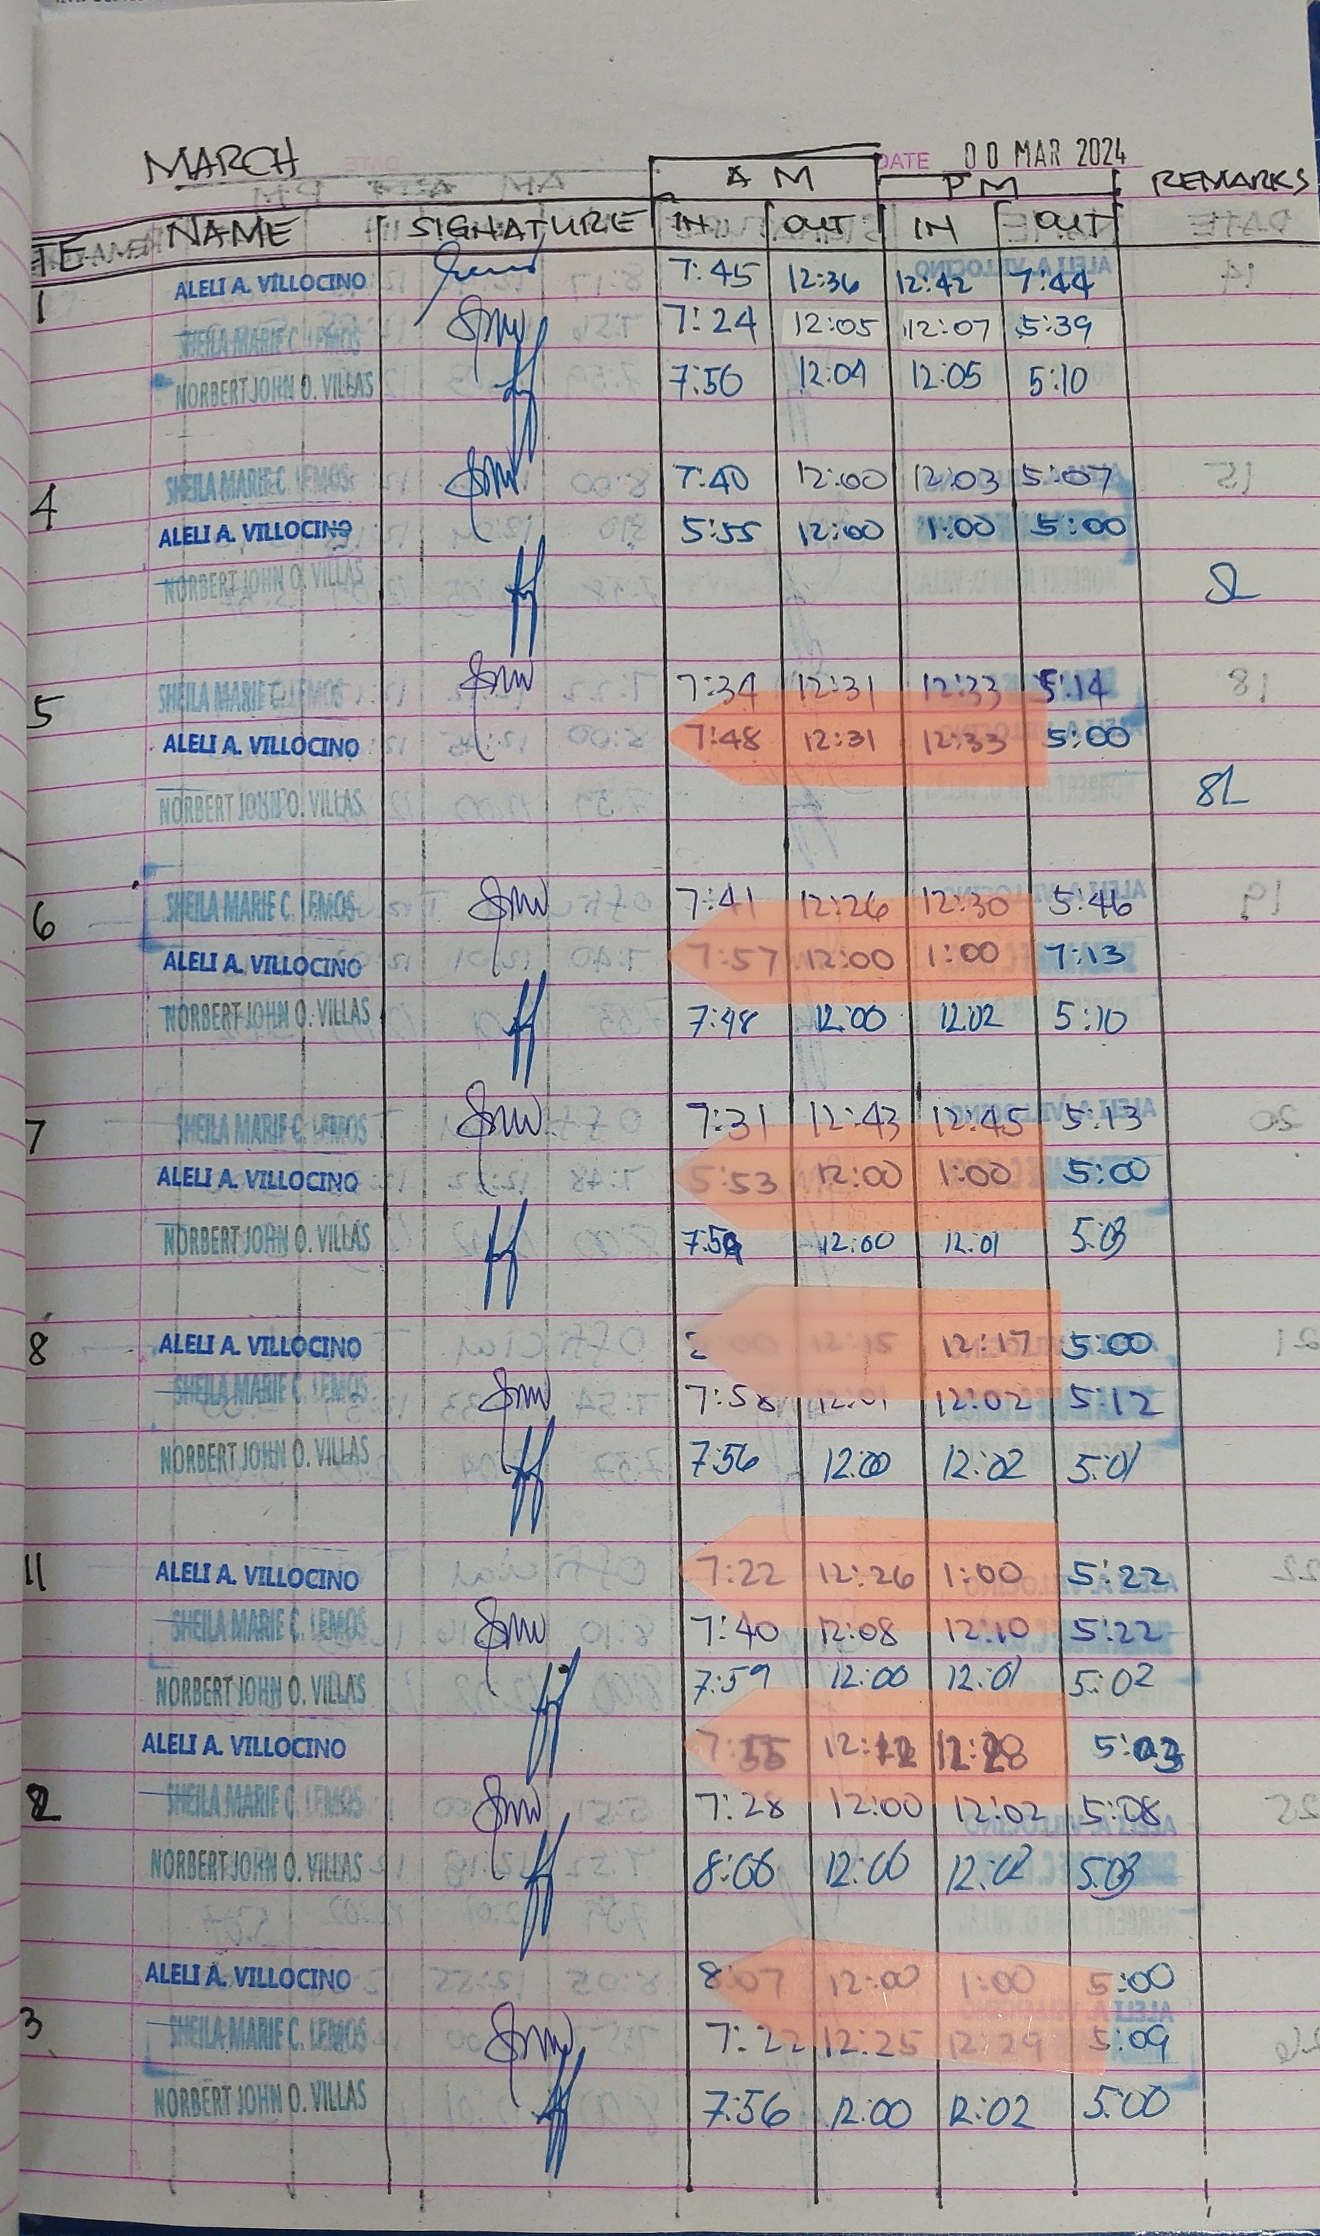 MARCH DATE 00 MAR 2024
A M P M REMARKS
TE NAME SIGNATURE IN OUT IN OUT
1 ALELI A. VILLOCINO 7:45 12:36 12:42 7:44
SHEILA MARIE C. LEMOS 7:24 12:05 12:07 5:39
NORBERT JOHN O. VILLAS 7:50 12:04 12:05 5:10
4 SHEILA MARIE C. LEMOS 7:40 12:00 12:03 5:07
ALELI A. VILLOCINO 5:55 12:00 1:00 5:00
NORBERT JOHN O. VILLAS SL
5 SHEILA MARIE C. LEMOS 7:34 12:31 12:33 5:14
ALELI A. VILLOCINO 7:48 12:31 12:33 5:00
NORBERT JOHN O. VILLAS SL
6 SHEILA MARIE C. LEMOS 7:41 12:26 12:30 5:46
ALELI A. VILLOCINO 7:57 12:00 1:00 7:13
NORBERT JOHN O. VILLAS 7:48 12:00 12:02 5:10
7 SHEILA MARIE C. LEMOS 7:31 12:43 12:45 5:13
ALELI A. VILLOCINO 5:53 12:00 1:00 5:00
NORBERT JOHN O. VILLAS 12:00 12:01 5:03
8 ALELI A. VILLOCINO 12:15 12:17 5:00
SHEILA MARIE C. LEMOS 7:58 12:01 12:02 5:12
NORBERT JOHN O. VILLAS 7:56 12:00 12:02 5:01
11 ALELI A. VILLOCINO 7:22 12:26 1:00 5:22
SHEILA MARIE C. LEMOS 7:40 12:08 12:10 5:22
NORBERT JOHN O. VILLAS 7:59 12:00 12:01 5:02
ALELI A. VILLOCINO 7:55 12:12 12:28 5:03
2 SHEILA MARIE C. LEMOS 7:28 12:00 12:02 5:08
NORBERT JOHN O. VILLAS 8:00 12:00 12:02 5:03
ALELI A. VILLOCINO 8:07 12:00 1:00 5:00
3 SHEILA MARIE C. LEMOS 7:22 12:25 12:29 5:09
NORBERT JOHN O. VILLAS 7:56 12:00 12:02 5:00